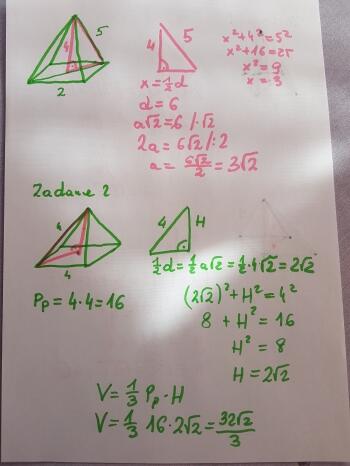 4 5
2
4 5
x²+4²=5²
x²+16=25
x²=9
x=3
x=½d
d=6
a√2=6 /·√2
2a=6√2 /:2
a=6√2/2=3√2
Zadanie 2
4
4
4 H
½d=½a√2=½·4√2=2√2
Pp=4·4=16
(2√2)²+H²=4²
8+H²=16
H²=8
H=2√2
V=⅓Pp·H
V=⅓ 16·2√2=32√2/3